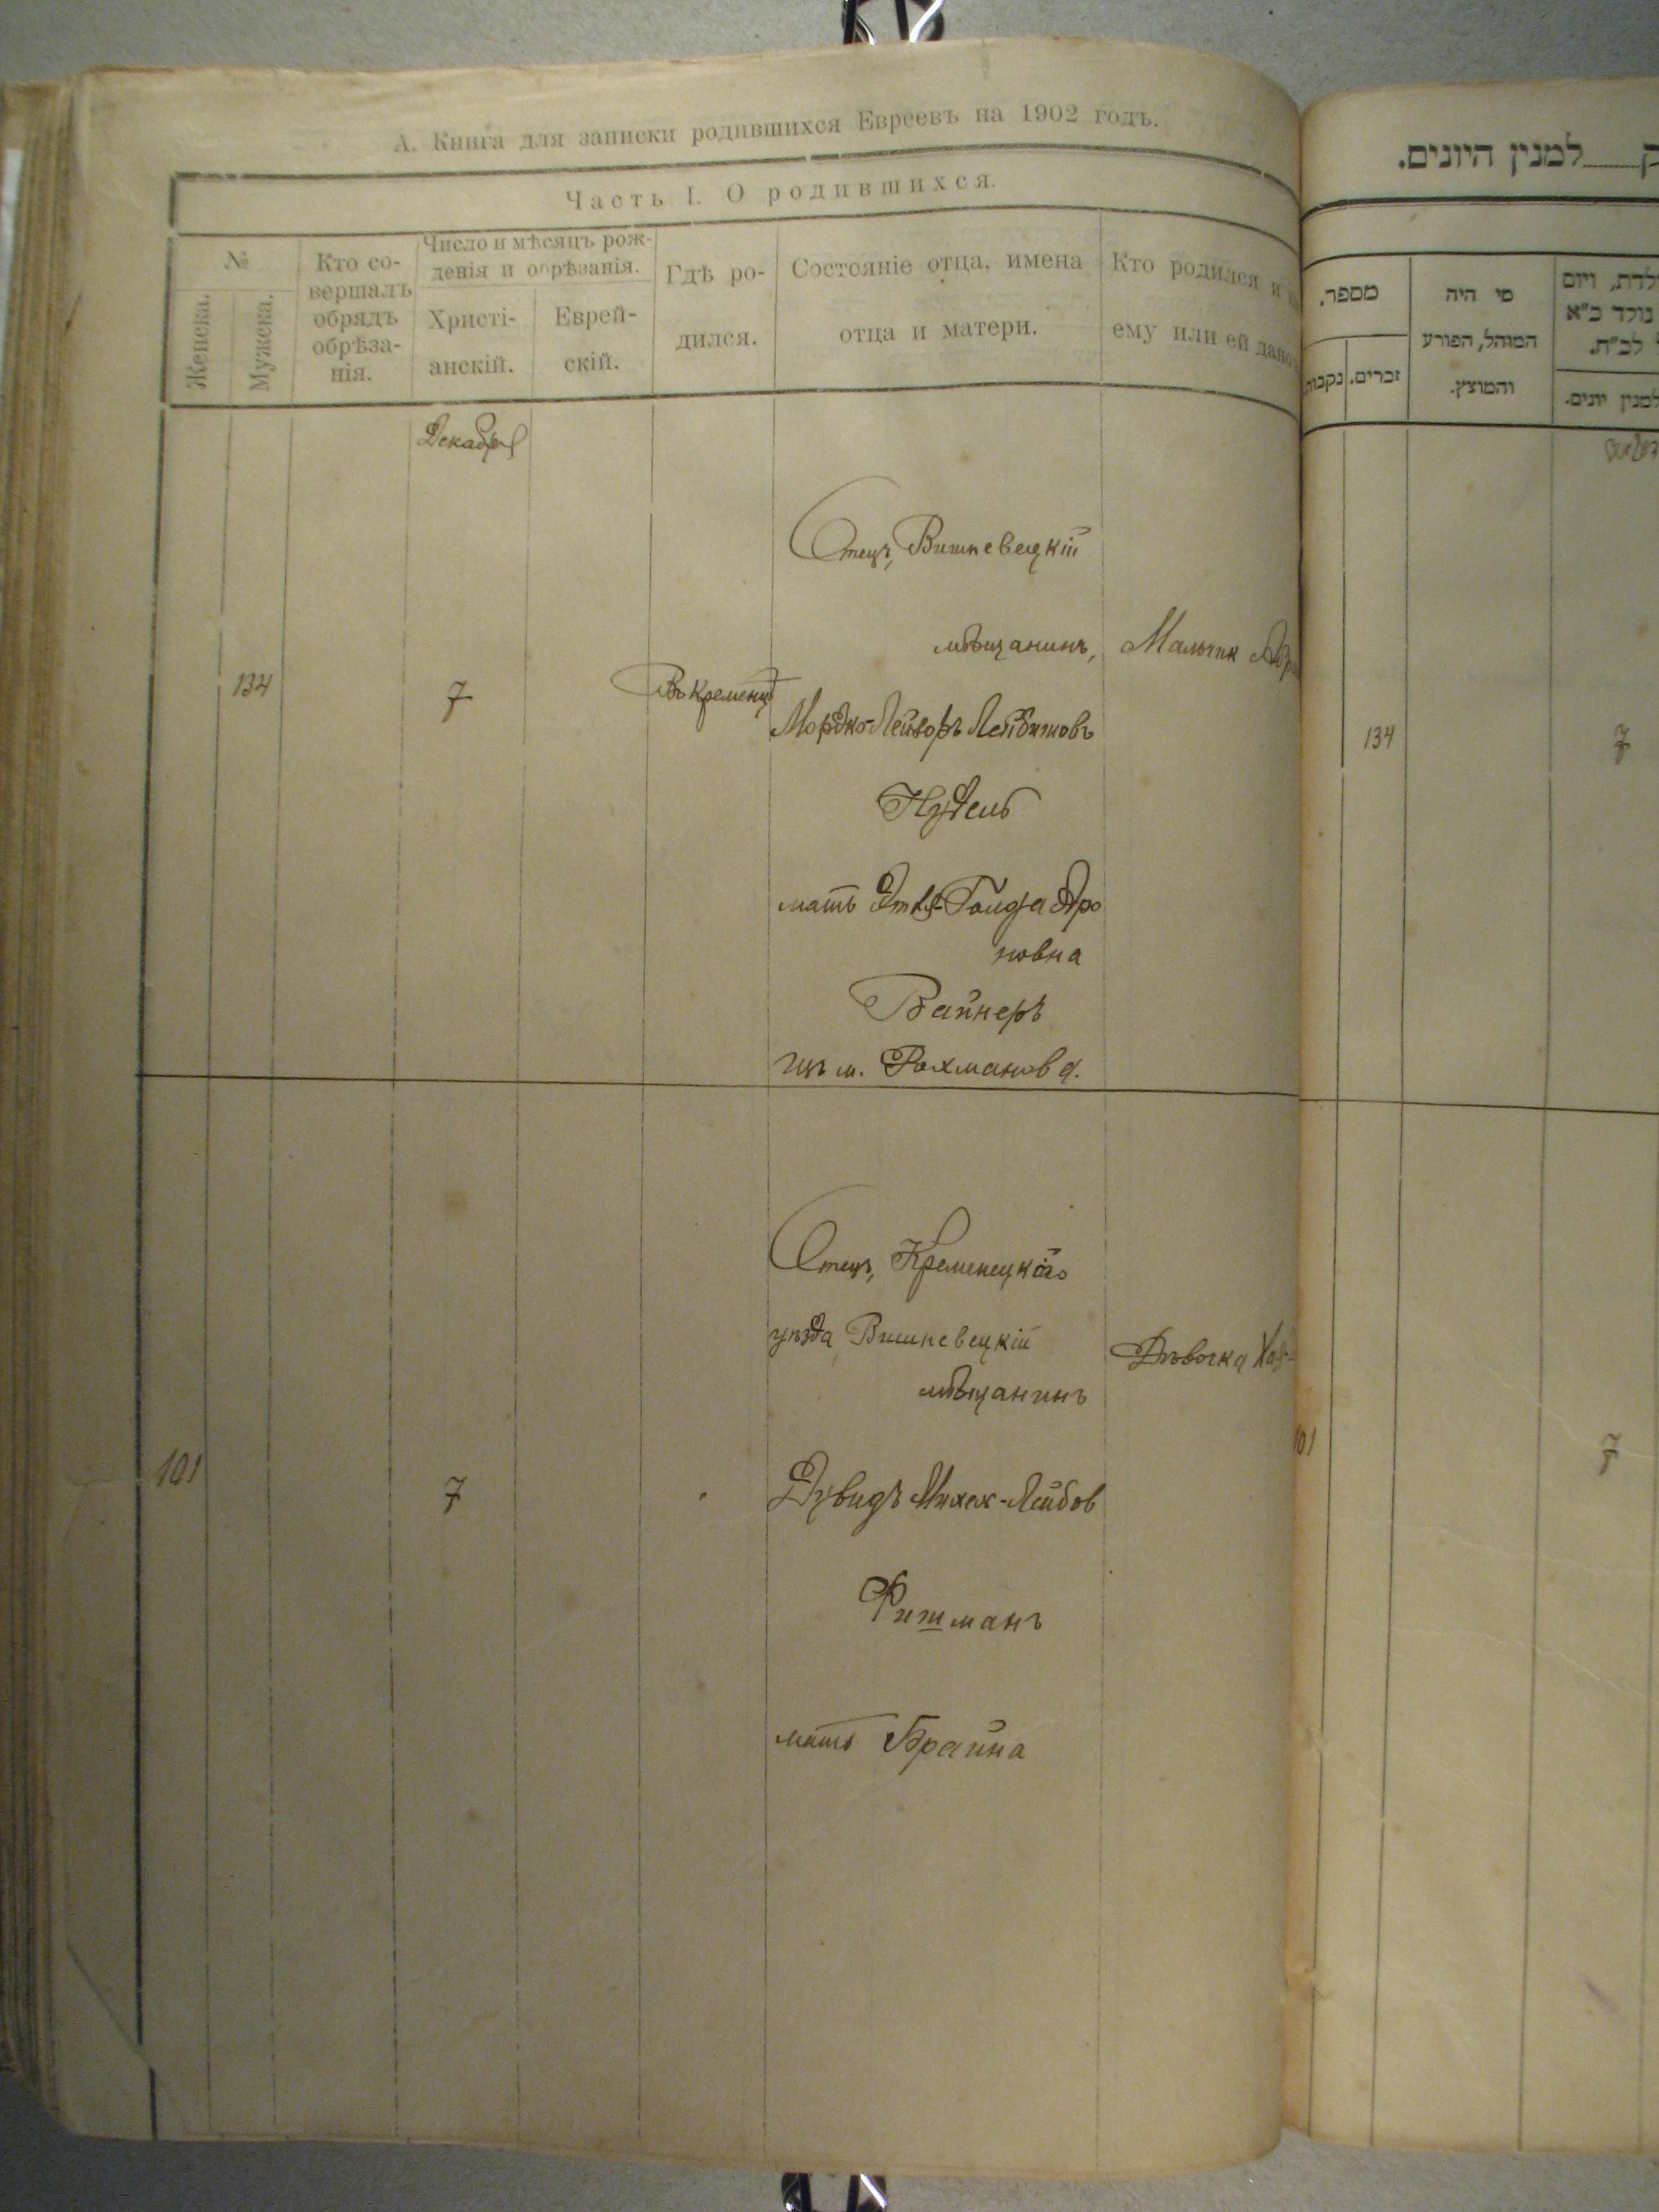 А. Книга для записки родившихся Евреевъ на 1902 годъ.
Часть I. О родившихся.
№
Женска.
Мужеска.
Кто со-
вершалъ
обрядъ
обрѣза-
нія.
Число и мѣсяцъ рож-
денія и обрѣзанія.
Христі-
анскій.
Еврей-
скій.
Гдѣ ро-
дился.
Состояніе отца, имена
отца и матери.
Кто родился и
ему или ей дано
Декабря
Отецъ, Вишневецкій
мѣщанинъ,
134
7
Въ Кременцѣ
Мордко-Лейзоръ Лейбишовъ
Нудель
мать Этля-Голда Аро
новна
Вайнеръ
изъ м. Рахманова.
Мальчик
101
7
Отецъ, Кременецкаго
уѣзда Вишневецкій
мѣщанинъ
Дувидъ Михел-Лейбов
Фишманъ
мать Брайна
Дѣвочка
למנין היונים.
מספר.
זכרים.
נקבות
מי היה
המוהל, הפורע
והמוצץ.
ויום
נולד כ"א
לכ"ח.
למנין יונים.
134
7
101
7